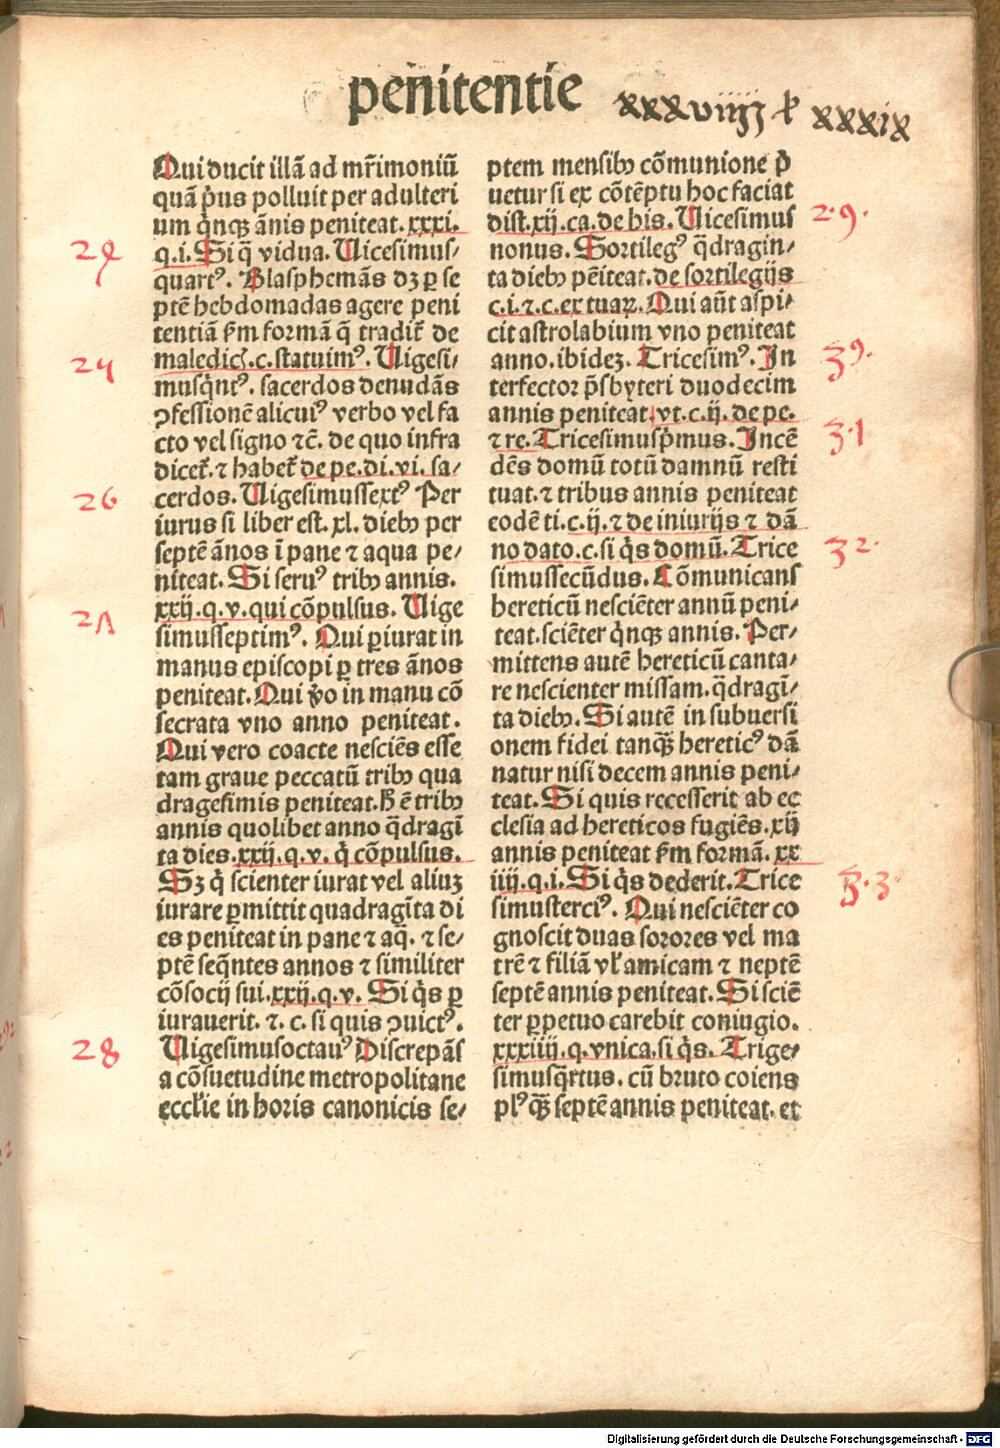 penitentie
xxxviiij ł xxxix
Qui ducit illā ad mr̄imoniū
quā p̄us polluit per adulteri
um q̄nqꝫ ānis peniteat. xxxi.
24
q.i. Si q̄ vidua. Uicesimus⸗
quartꝰ. Blasphemās dꝫ ꝑ se
ptē hebdomadas agere peni
tentiā ẜm formā q̄ tradit̄ de
25
maledic̄. c. statuimꝰ. Uigesi⸗
musq̄ntꝰ. sacerdos denudās
ꝯfessionē alicuiꝰ verbo vel fa
cto vel signo ⁊c̄. de quo infra
dicet̄. ⁊ habet̄ de pe. di. vi. sa⸗
26
cerdos. Uigesimussextꝰ Per
iurus si liber est. xl. diebꝰ per
septē ānos ī pane ⁊ aqua pe⸗
niteat. Si seruꝰ tribꝰ annis.
xxij. q. v. qui cōpulsus. Uige
27
simusseptimꝰ. Qui ꝑiurat in
manus episcopi ꝑ tres ānos
peniteat. Qui ṽo in manu cō
secrata vno anno peniteat.
Qui vero coacte nesciēs esse
tam graue peccatū tribꝰ qua
dragesimis peniteat. h̄ ē tribꝰ
annis quolibet anno q̄dragī
ta dies. xxij. q. v. q̄ cōpulsus.
Sꝫ q̄ scienter iurat vel aliuꝫ
iurare ꝑmittit quadragīta di
es peniteat in pane ⁊ aq̄. ⁊ se⸗
ptē seq̄ntes annos ⁊ similiter
cōsocij sui. xxij. q. v. Si q̄s ꝑ
iurauerit. ⁊. c. si quis ꝯuictꝰ.
28
Uigesimusoctauꝰ Discrepās
a cōsuetudine metropolitane
eccl̄ie in horis canonicis se⸗
ptem mensibꝰ cōmunione p̄
uetur si ex cōtēptu hoc faciat
dist. xij. ca. de his. Uicesimus
29.
nonus. Sortilegꝰ q̄dragin⸗
ta diebꝰ pēiteat. de sortilegijs
c. i. ⁊. c. ex tuaꝝ. Qui aūt aspi⸗
cit astrolabium vno peniteat
anno. ibideꝫ. Tricesimꝰ. In
30.
terfector p̄sbyteri duodecim
annis peniteat. vt. c. ij. de pe.
⁊ re. Tricesimusp̄mus. Incē
31
dēs domū totū damnū resti
tuat. ⁊ tribus annis peniteat
eodē ti. c. ij. ⁊ de iniurijs ⁊ dā
no dato. c. si q̄s domū. Trice
32.
simussecūdus. Cōmunicans
hereticū nesciēter annū peni⸗
teat. sciēter q̄nqꝫ annis. Per⸗
mittens autē hereticū canta⸗
re nescienter missam. q̄dragī⸗
ta diebꝰ. Si autē in subuersi
onem fidei tanqꝫ̄ hereticꝰ dā
natur nisi decem annis peni⸗
teat. Si quis recesserit ab ec
clesia ad hereticos fugiēs. xij
annis peniteat ẜm formā. xx
iiij. q. i. Si q̄s dederit. Trice
33
simusterciꝰ. Qui nesciēter co
gnoscit duas sorores vel ma
trē ⁊ filiā vl̄ amicam ⁊ neptē
septē annis peniteat. Si sciē
ter ꝑpetuo carebit coniugio.
xxxiiij. q. vnica. si q̄s. Trige⸗
simusq̄rtus. cū bruto coiens
plꝰ qꝫ̄ septē annis peniteat. et
Digitalisierung gefördert durch die Deutsche Forschungsgemeinschaft - DFG